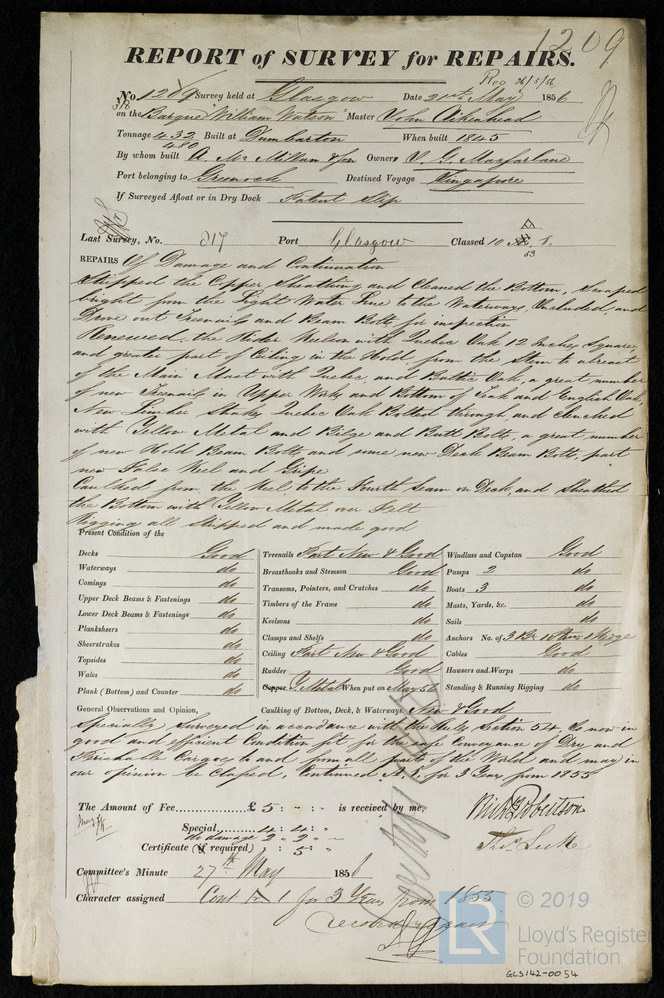 1209
REPORT of SURVEY for REPAIRS.
Rec 26/5/56
No. 1209 Survey held at Glasgow Date 21st May 1856
on the Barque "William Watson" Master John Aikenhead
Tonnage 432 Built at Dumbarton When built 1845
480
By whom built A. McMillan & Son Owners J. G. Macfarlane
Port belonging to Greenock Destined Voyage Singapore
If Surveyed Afloat or in Dry Dock Patent Slip
Last Survey, No. 217 Port Glasgow Classed 10 A. 1.
53
REPAIRS Of Damage and Continuation
Stripped the Copper Sheathing and Cleaned the Bottom, Scraped
bright from the Light Water Line to the Waterways, Included, and
Drove out Treenails and Beam Bolts for inspection
Renewed, the Rider Keelson with Quebec Oak 12 Inches Square,
and greater part of Ceiling in the Hold from the Stem to abreast
of the Main Mast with Quebec, and Baltic Oak, a great number
of new Treenails in Upper Works and Bottom of Teak and English Oak,
New Limber Strakes Quebec Oak Bolted through and clenched
with Yellow Metal and Bilge and Butt Bolts, a great number
of new Hold Beam Bolts and some new Deck Beam Bolts, part
new False Keel and Gripe
Caulked from the Keel to the Fourth Seam on Deck, and Sheathed
the Bottom with Yellow Metal over Felt
Rigging all Stripped and made good
Present Condition of the
Decks Good
Waterways do
Comings do
Upper Deck Beams & Fastenings do
Lower Deck Beams & Fastenings do
Planksheers do
Sheerstrakes do
Topsides do
Wales do
Plank (Bottom) and Counter do
Treenails Part New & Good
Breasthooks and Stemson Good
Transoms, Pointers, and Crutches do
Timbers of the Frame do
Keelsons do
Clamps and Shelfs do
Ceiling Part New & Good
Rudder Good
Copper Y. Metal When put on May 56
Caulking of Bottom, Deck, & Waterways. New & Good
Windlass and Capstan Good
Pumps 2 do
Boats 3 do
Masts, Yards, &c. do
Sails do
Anchors No. of 3 Br. 1 Stream 1 Kedge
Cables Good
Hawsers and Warps do
Standing & Running Rigging do
General Observations and Opinion,
Specially Surveyed in accordance with the Rules Section 54, Is now in
good and efficient Condition fit for the safe Conveyance of Dry and
Perishable Cargoes to and from all parts of the World and may in
our opinion be Classed, Continued A. 1. for 3 Years from 1855
The Amount of Fee £ 5 : - : - is received by me,
Special 4 : 4 : -
No damage 2 : 2 : -
Certificate (if required) : 5 : -
Committee's Minute 27th May 1856
Character assigned Cont A 1 for 3 Years from 1855
© 2019
LR
Lloyd's Register
Foundation
GLS142-0054